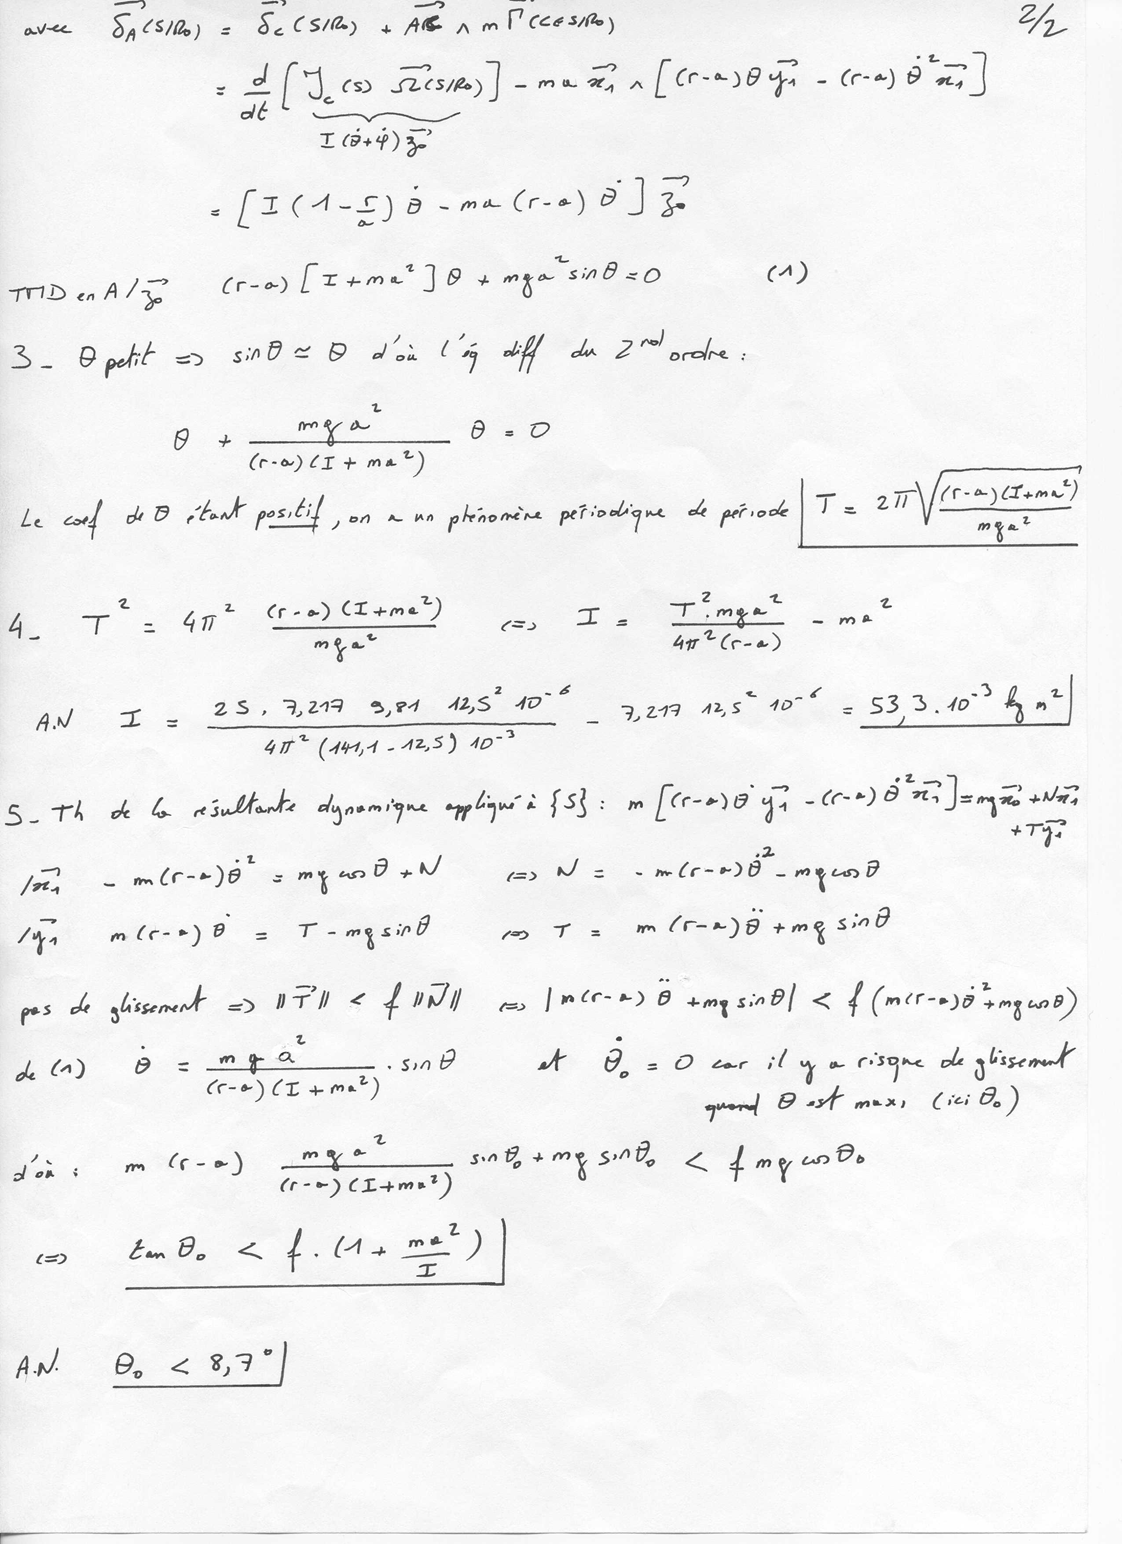 2/2
avec δ_A(S/R₀) = δ_C(S/R₀) + AC ∧ m Γ(C∈S/R₀)
= d/dt [ J_c(S) Ω(S/R₀) ] - ma x₁ ∧ [ (r-a) θ y₁ - (r-a) θ̇² x₁ ]
I (θ̇+φ̇) z₀
= [ I (1 - r/a) θ̇ - ma (r-a) θ̇ ] z₀
TMD en A/z₀ (r-a) [ I + ma² ] θ + mga² sinθ = 0 (1)
3- θ petit => sinθ ≃ θ d'où l'éq diff du 2nd ordre :
θ + mga² / (r-a)(I + ma²) θ = 0
Le coef de θ étant positif, on a un phénomène périodique de période T = 2π √( (r-a)(I+ma²) / mga² )
4- T² = 4π² (r-a)(I+ma²) / mga² <=> I = T².mga² / 4π²(r-a) - ma²
A.N I = 25. 7,217 9,81 12,5² 10⁻⁶ / 4π² (141,1 - 12,5) 10⁻³ - 7,217 12,5² 10⁻⁶ = 53,3.10⁻³ kg m²
5- Th de la résultante dynamique appliqué à {S} : m [ (r-a) θ̇ y₁ - (r-a) θ̇² x₁ ] = mg x₀ + N x₁
+ T y₁
/x₁ - m(r-a) θ̇² = mg cosθ + N <=> N = - m(r-a) θ̇² - mg cosθ
/y₁ m(r-a) θ̇ = T - mg sinθ <=> T = m (r-a) θ̈ + mg sinθ
pas de glissement => ||T|| < f ||N|| <=> | m(r-a) θ̈ + mg sinθ | < f (m(r-a) θ̇² + mg cosθ)
de (1) θ̇ = mga² / (r-a)(I + ma²) . sinθ et θ̇₀ = 0 car il y a risque de glissement
quand θ est max, (ici θ₀)
d'où : m (r-a) mga² / (r-a)(I+ma²) sinθ₀ + mg sinθ₀ < f mg cosθ₀
<=> tan θ₀ < f . (1 + ma²/I)
A.N. θ₀ < 8,7°